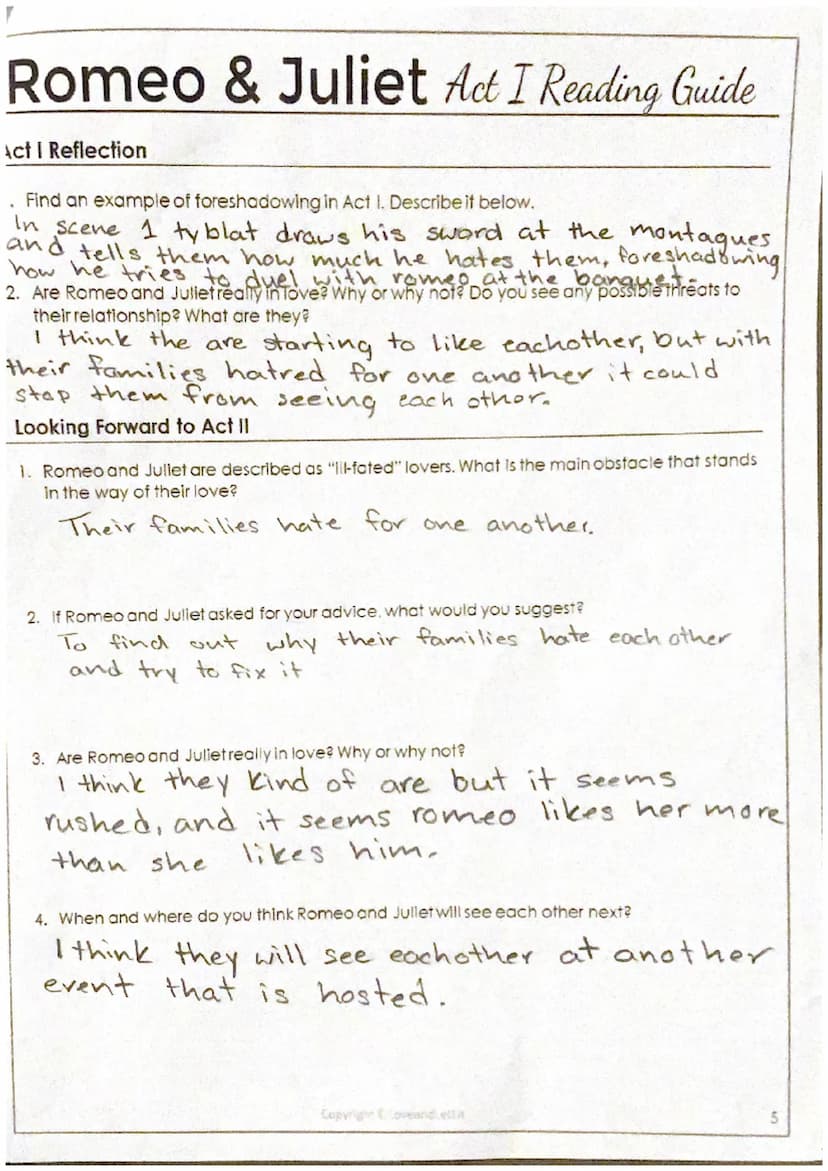 Romeo & Juliet Act I Reading Guide
Act I Reflection
. Find an example of foreshadowing in Act I. Describe it below.
In scene 1 tyblat draws his sword at the montagues
and tells them how much he hates them, foreshadowing
how he tries to duel with romeo at the banquet.
2. Are Romeo and Juliet really in love? Why or why not? Do you see any possible threats to
their relationship? What are they?
I think the are starting to like eachother, but with
their families hatred for one another it could
stop them from seeing each other.
Looking Forward to Act II
1. Romeo and Juliet are described as "ill-fated" lovers. What is the main obstacle that stands
in the way of their love?
Their families hate for one another.
2. If Romeo and Juliet asked for your advice, what would you suggest?
To find out why their families hate each other
and try to fix it
3. Are Romeo and Juliet really in love? Why or why not?
I think they kind of are but it seems
rushed, and it seems romeo likes her more
than she likes him.
4. When and where do you think Romeo and Juliet will see each other next?
I think they will see eachother at another
event that is hosted.
Copyright ©
5